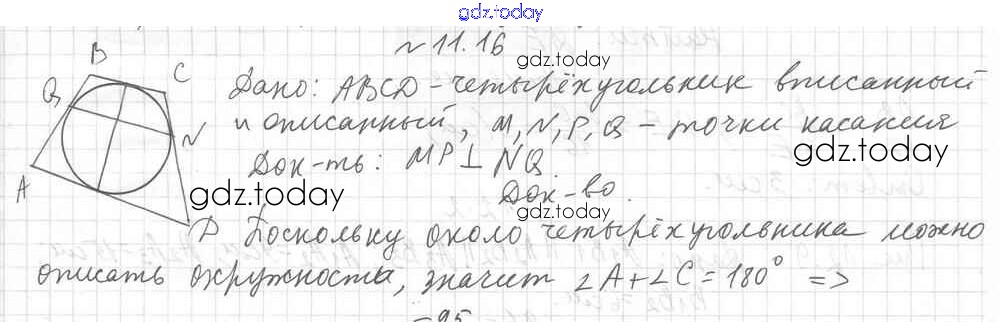 gdz.today
№ 11.16
gdz.today
B
C
Q
N
A
D
Дано: ABCD – четырёхугольник вписанный
и описанный, M, N, P, Q – точки касания
gdz.today
Док-ть: MP ⊥ NQ
gdz.today
Док-во.
gdz.today
Поскольку около четырёхугольника можно
описать окружность, значит ∠A + ∠C = 180° =>